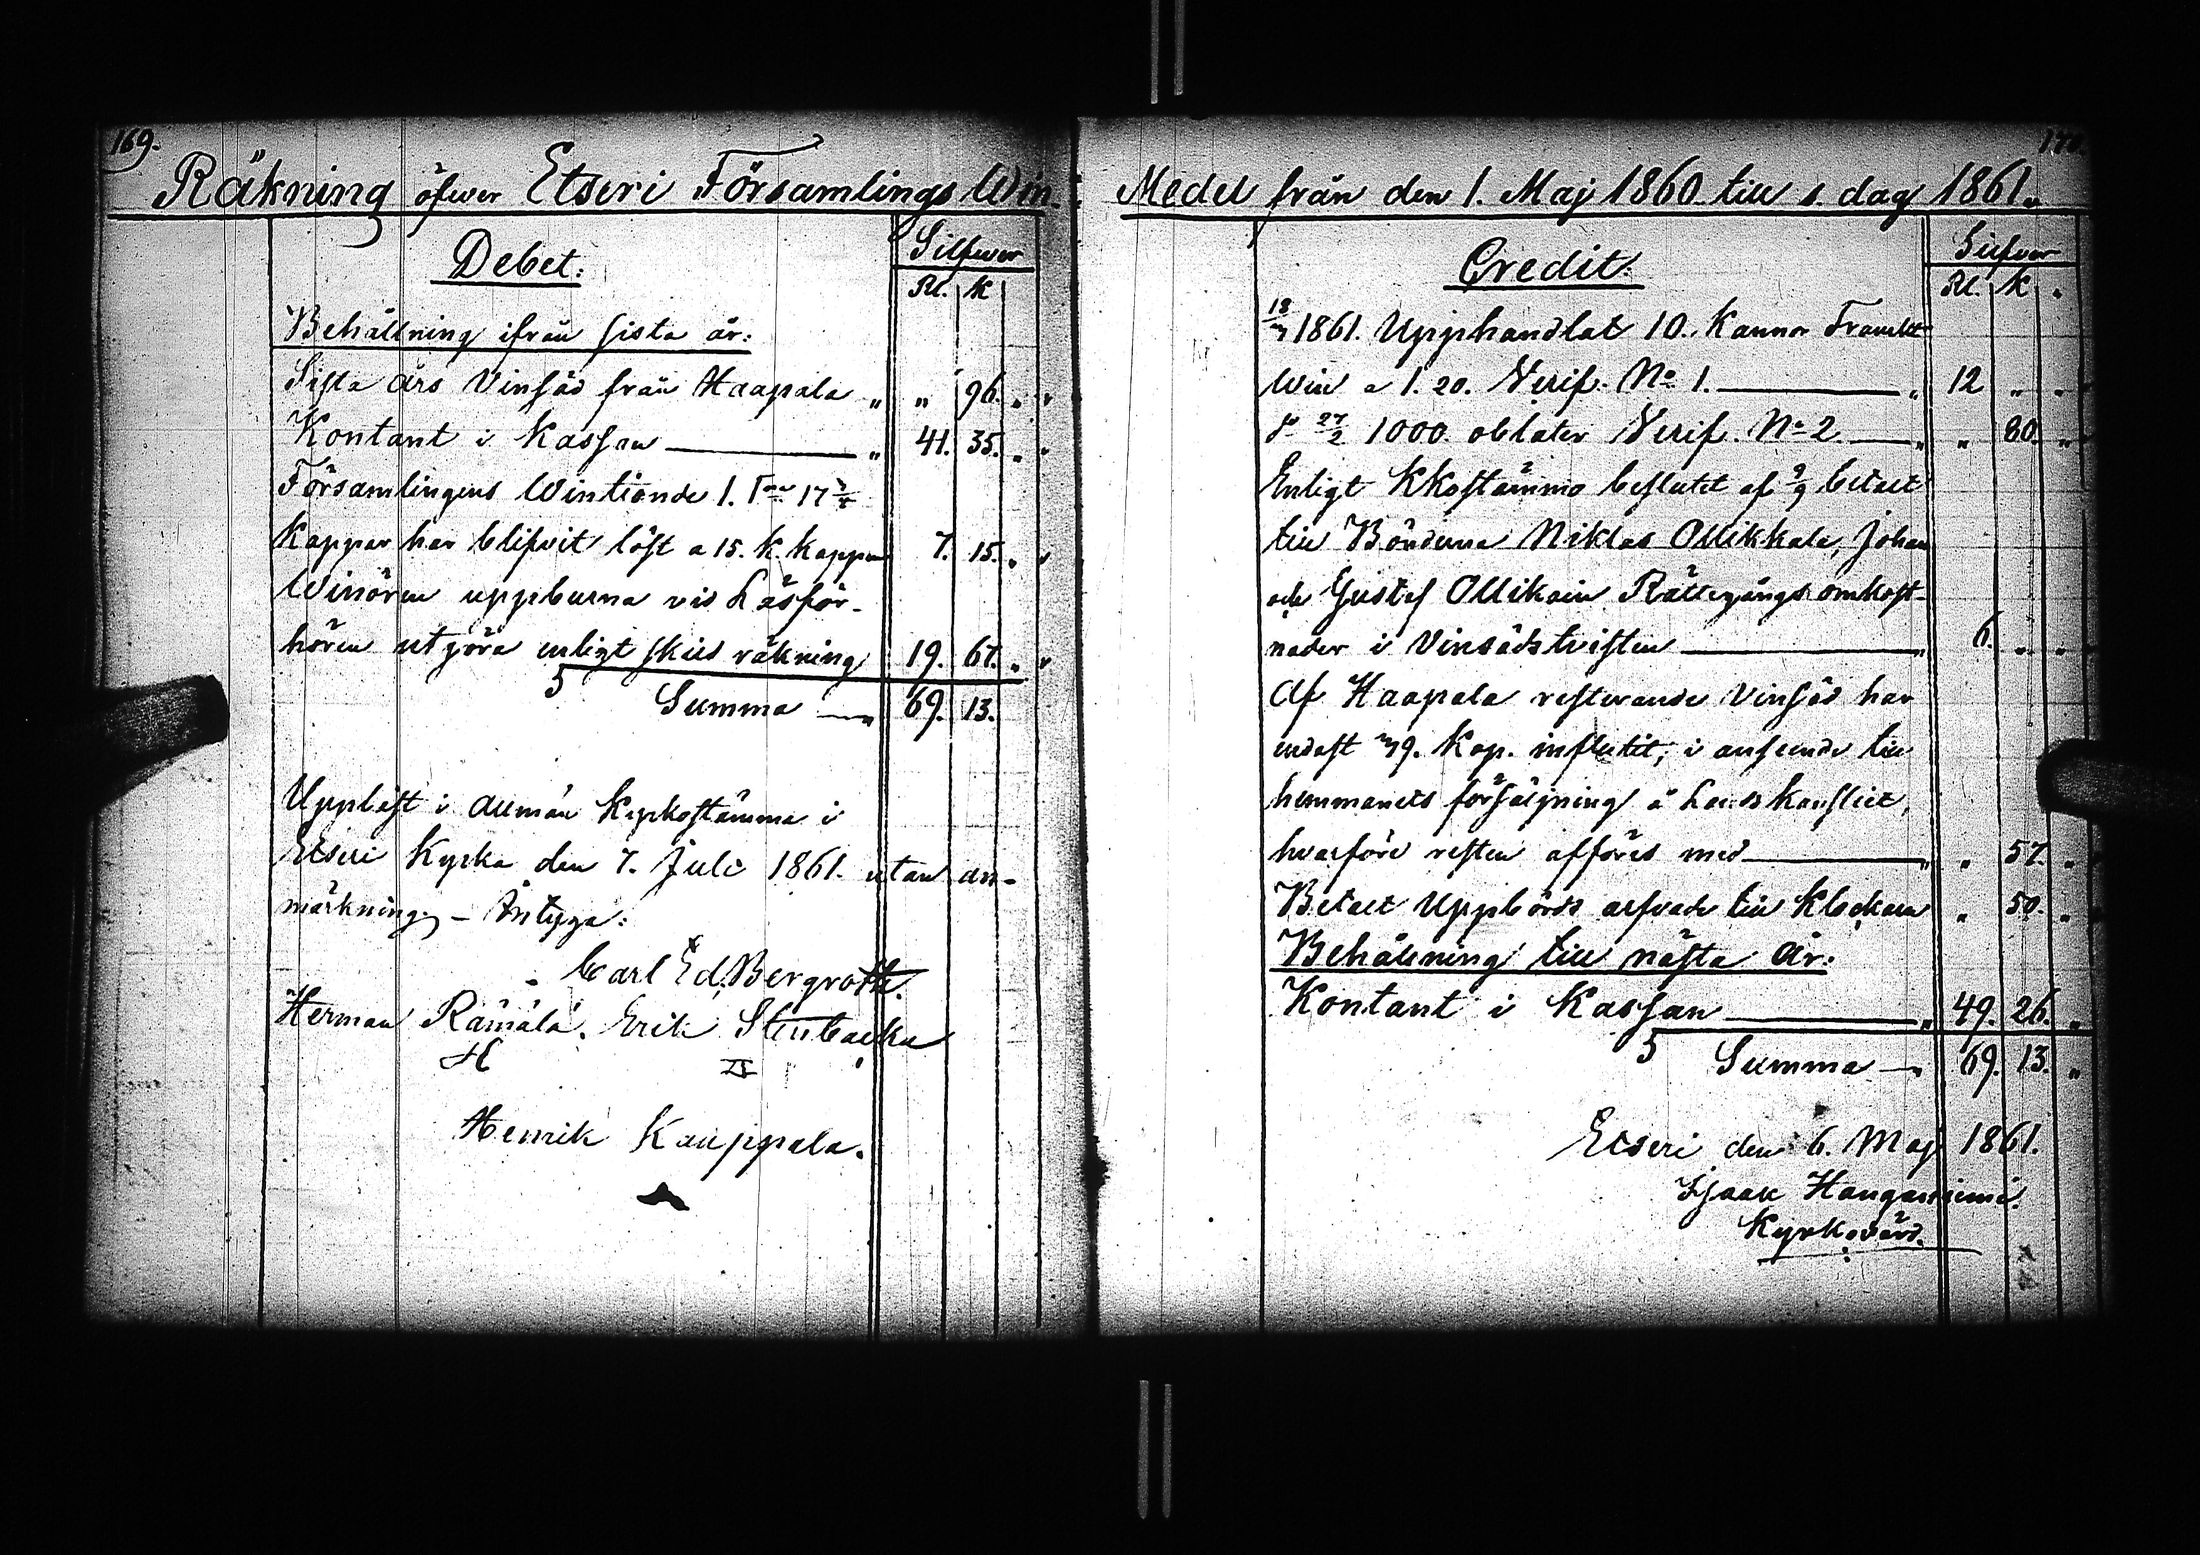 169.
Räkning öfwer Etseri Församlings Win-
Debet:
Silfwer
Rl. K
Behållning ifrån sista år:
Sista års Vinsäd från Haapala „ „ 96. „
Kontant i Kassan „ 41. 35. „
Församlingens Wintionde 1. 17
Kappar har blifvit löst a 15. K. Kappen 7. 15. „
Winören uppburna vid Läsför-
hören utgöra enligt skild räkning 19. 67. „
Summa „ 69. 13.
Uppläst i allmän Kyrkostämma i
Etseri Kyrka den 7. Juli 1861. utan an-
märkning, - Intyga:
Carl Ed. Bergroth.
Herman Rämälä. Erik Stenbacka
Henrik Kauppala.
170.
Medel från den 1. Maj 1860 till s. dag 1861.
Credit:
Silfver
Rl. K.
1861. Upphandlat 10. Kannor Franskt
Win a 1. 20. Verif. No 1. „ 12 „ „
do 27/2 1000. oblater Verif. No 2. „ „ 80. „
Enligt Kkostämmo beslutet af 2/9 betalt
till Bönderna Niklas Ollikkala, Johan
och Gustaf Ollikain Rättegångs omkost-
nader i Vinsädstvisten „ 6. „ „
Af Haapala resterande Vinsäd har
endast 39. Kop. influtit, i anseende till
hemmanets försäljning å Landskansliet,
hvarföre resten afföres med „ „ 57. „
Betalt Uppbörds arfvode till Klockaren „ 50. „
Behållning till nästa År:
Kontant i Kassan „ 49. 26. „
Summa „ 69. 13. „
Etseri den 6. Maj 1861.
Isaak Hangasniemi.
Kyrkovärd.